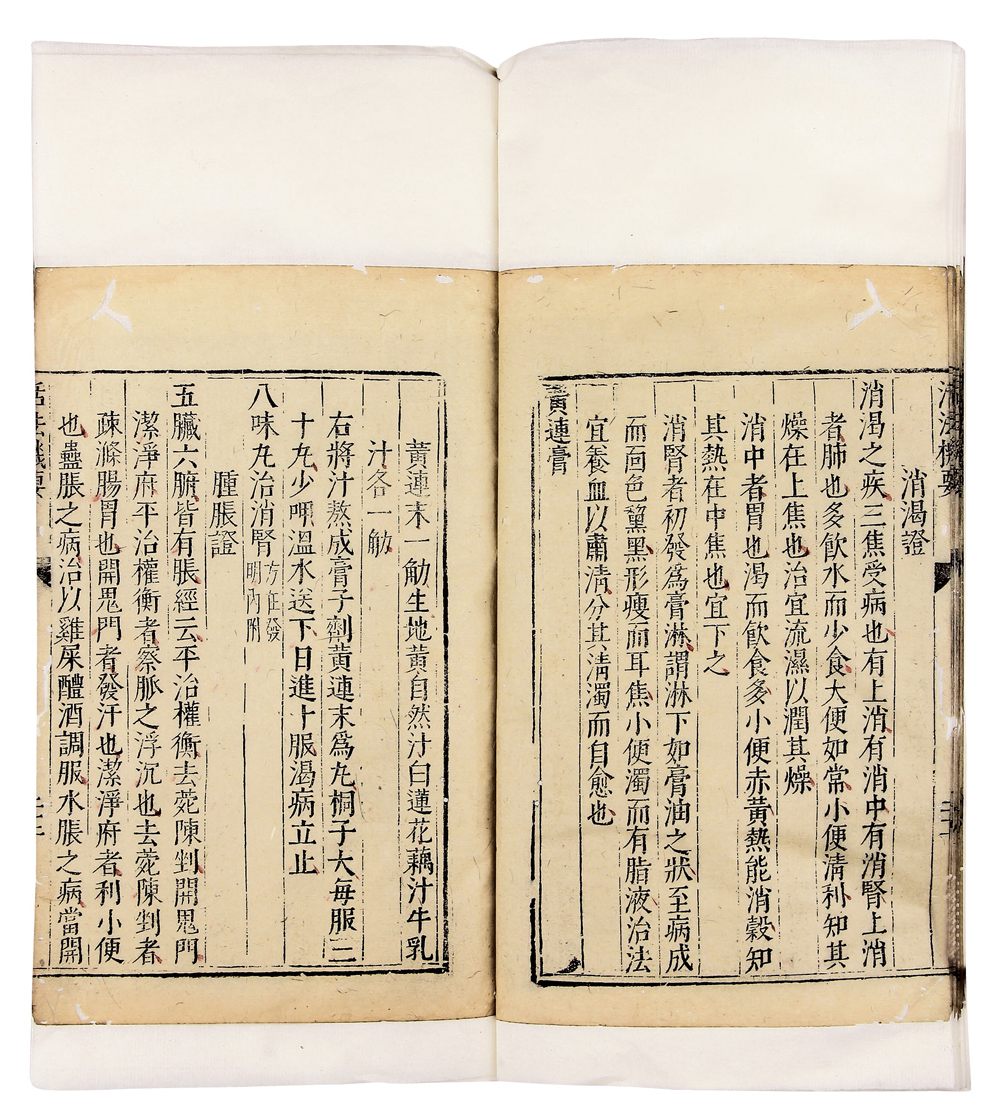 活法機要
消渴證
消渴之疾三焦受病也有上消有消中有消腎上消
者肺也多飲水而少食大便如常小便淸利知其
燥在上焦也治宜流濕以潤其燥
消中者胃也渴而飲食多小便赤黃熱能消穀知
其熱在中焦也宜下之
消腎者初發爲膏淋謂淋下如膏油之狀至病成
而靣色黧黑形瘦而耳焦小便濁而有脂液治法
宜養血以肅淸分其淸濁而自愈也
黃連膏
黃連末一觔生地黃自然汁白蓮花藕汁牛乳
汁各一觔
右將汁熬成膏子劑黃連末爲丸桐子大每服二
十丸少呷溫水送下日進十服渴病立止
八味丸治消腎方在發
明內附
腫脹證
五臟六腑皆有脹經云平治權衡去菀陳剉開鬼門
潔淨府平治權衡者察脈之浮沉也去菀陳剉者
疎滌腸胃也開鬼門者發汗也潔淨府者利小便
也蠱脹之病治以雞屎醴酒調服水脹之病當開
活法機要